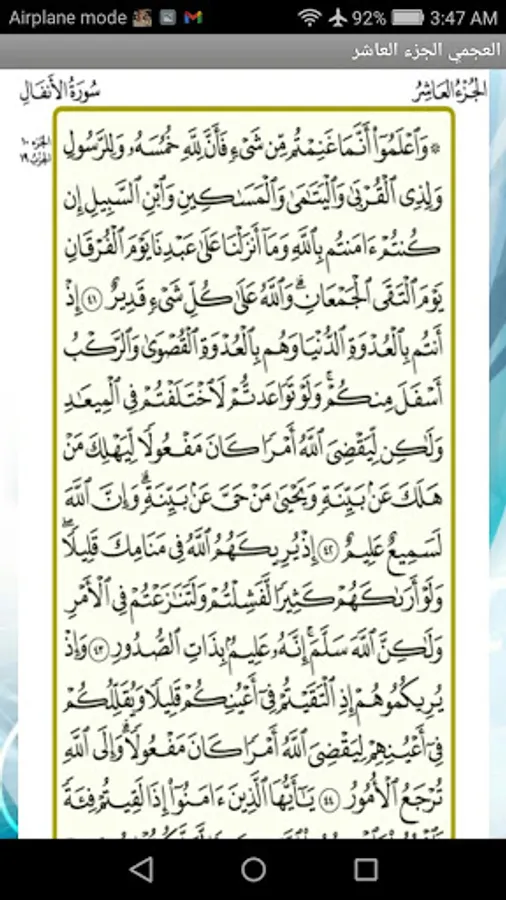 Airplane mode 92% 3:47 AM
العجمي الجزء العاشر
الجُزْءُ العَاشِرُ سُورَةُ الأَنفَال
الجزء ١٠
الحزب ١٩
* وَٱعۡلَمُوٓاْ أَنَّمَا غَنِمۡتُم مِّن شَيۡءٖ فَأَنَّ لِلَّهِ خُمُسَهُۥ وَلِلرَّسُولِ
وَلِذِي ٱلۡقُرۡبَىٰ وَٱلۡيَتَٰمَىٰ وَٱلۡمَسَٰكِينِ وَٱبۡنِ ٱلسَّبِيلِ إِن
كُنتُمۡ ءَامَنتُم بِٱللَّهِ وَمَآ أَنزَلۡنَا عَلَىٰ عَبۡدِنَا يَوۡمَ ٱلۡفُرۡقَانِ
يَوۡمَ ٱلۡتَقَى ٱلۡجَمۡعَانِۗ وَٱللَّهُ عَلَىٰ كُلِّ شَيۡءٖ قَدِيرٌ ٤١ إِذۡ
أَنتُم بِٱلۡعُدۡوَةِ ٱلدُّنۡيَا وَهُم بِٱلۡعُدۡوَةِ ٱلۡقُصۡوَىٰ وَٱلرَّكۡبُ
أَسۡفَلَ مِنكُمۡۚ وَلَوۡ تَوَاعَدتُّمۡ لَٱخۡتَلَفۡتُمۡ فِي ٱلۡمِيعَٰدِ
وَلَٰكِن لِّيَقۡضِيَ ٱللَّهُ أَمۡرٗا كَانَ مَفۡعُولٗا لِّيَهۡلِكَ مَنۡ
هَلَكَ عَنۢ بَيِّنَةٖ وَيَحۡيَىٰ مَنۡ حَيَّ عَنۢ بَيِّنَةٖۗ وَإِنَّ ٱللَّهَ
لَسَمِيعٌ عَلِيمٌ ٤٢ إِذۡ يُرِيكَهُمُ ٱللَّهُ فِي مَنَامِكَ قَلِيلٗاۖ
وَلَوۡ أَرَىٰكَهُمۡ كَثِيرٗا لَّفَشِلۡتُمۡ وَلَتَنَٰزَعۡتُمۡ فِي ٱلۡأَمۡرِ
وَلَٰكِنَّ ٱللَّهَ سَلَّمَۚ إِنَّهُۥ عَلِيمُۢ بِذَاتِ ٱلصُّدُورِ ٤٣ وَإِذۡ
يُرِيكُمُوهُمۡ إِذِ ٱلۡتَقَيۡتُمۡ فِيٓ أَعۡيُنِكُمۡ قَلِيلٗا وَيُقَلِّلُكُمۡ
فِيٓ أَعۡيُنِهِمۡ لِيَقۡضِيَ ٱللَّهُ أَمۡرٗا كَانَ مَفۡعُولٗاۗ وَإِلَى ٱللَّهِ
تُرۡجَعُ ٱلۡأُمُورُ ٤٤ يَٰٓأَيُّهَا ٱلَّذِينَ ءَامَنُوٓاْ إِذَا لَقِيتُمۡ فِئَةٗ